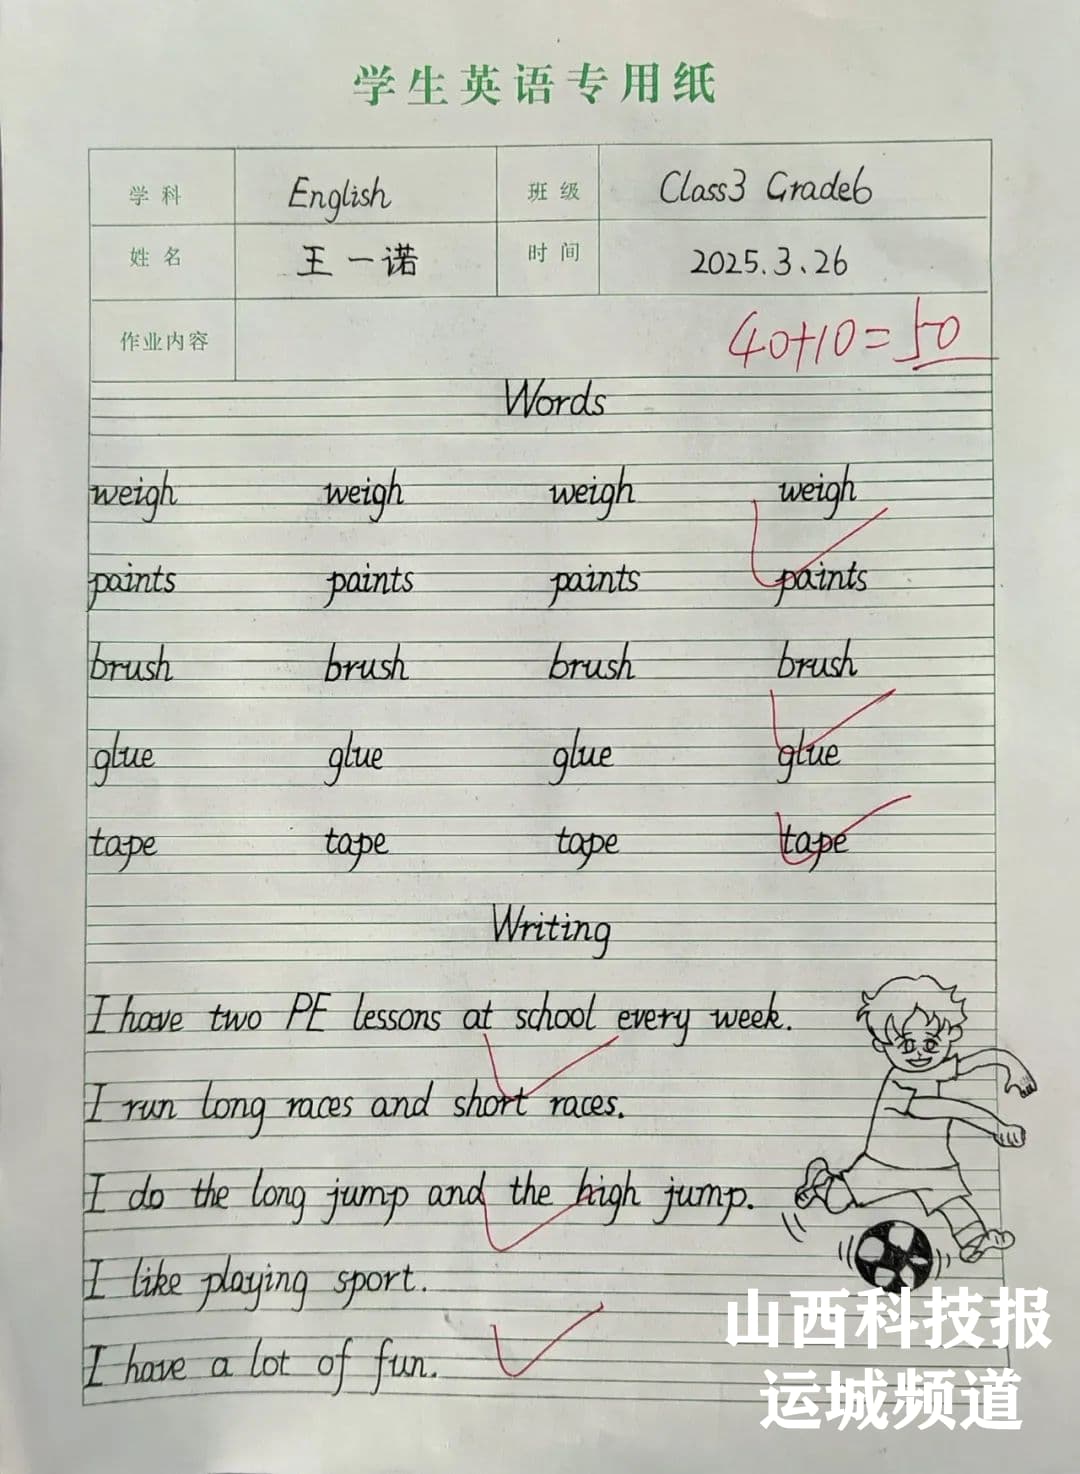 学生英语专用纸
学科 English 班级 Class3 Grade6
姓名 王一诺 时间 2025.3.26
作业内容 40+10=50
Words
weigh weigh weigh weigh
paints paints paints paints
brush brush brush brush
glue glue glue glue
tape tape tape tape
Writing
I have two PE lessons at school every week.
I run long races and short races.
I do the long jump and the high jump.
I like playing sport.
I have a lot of fun.
山西科技报
运城频道